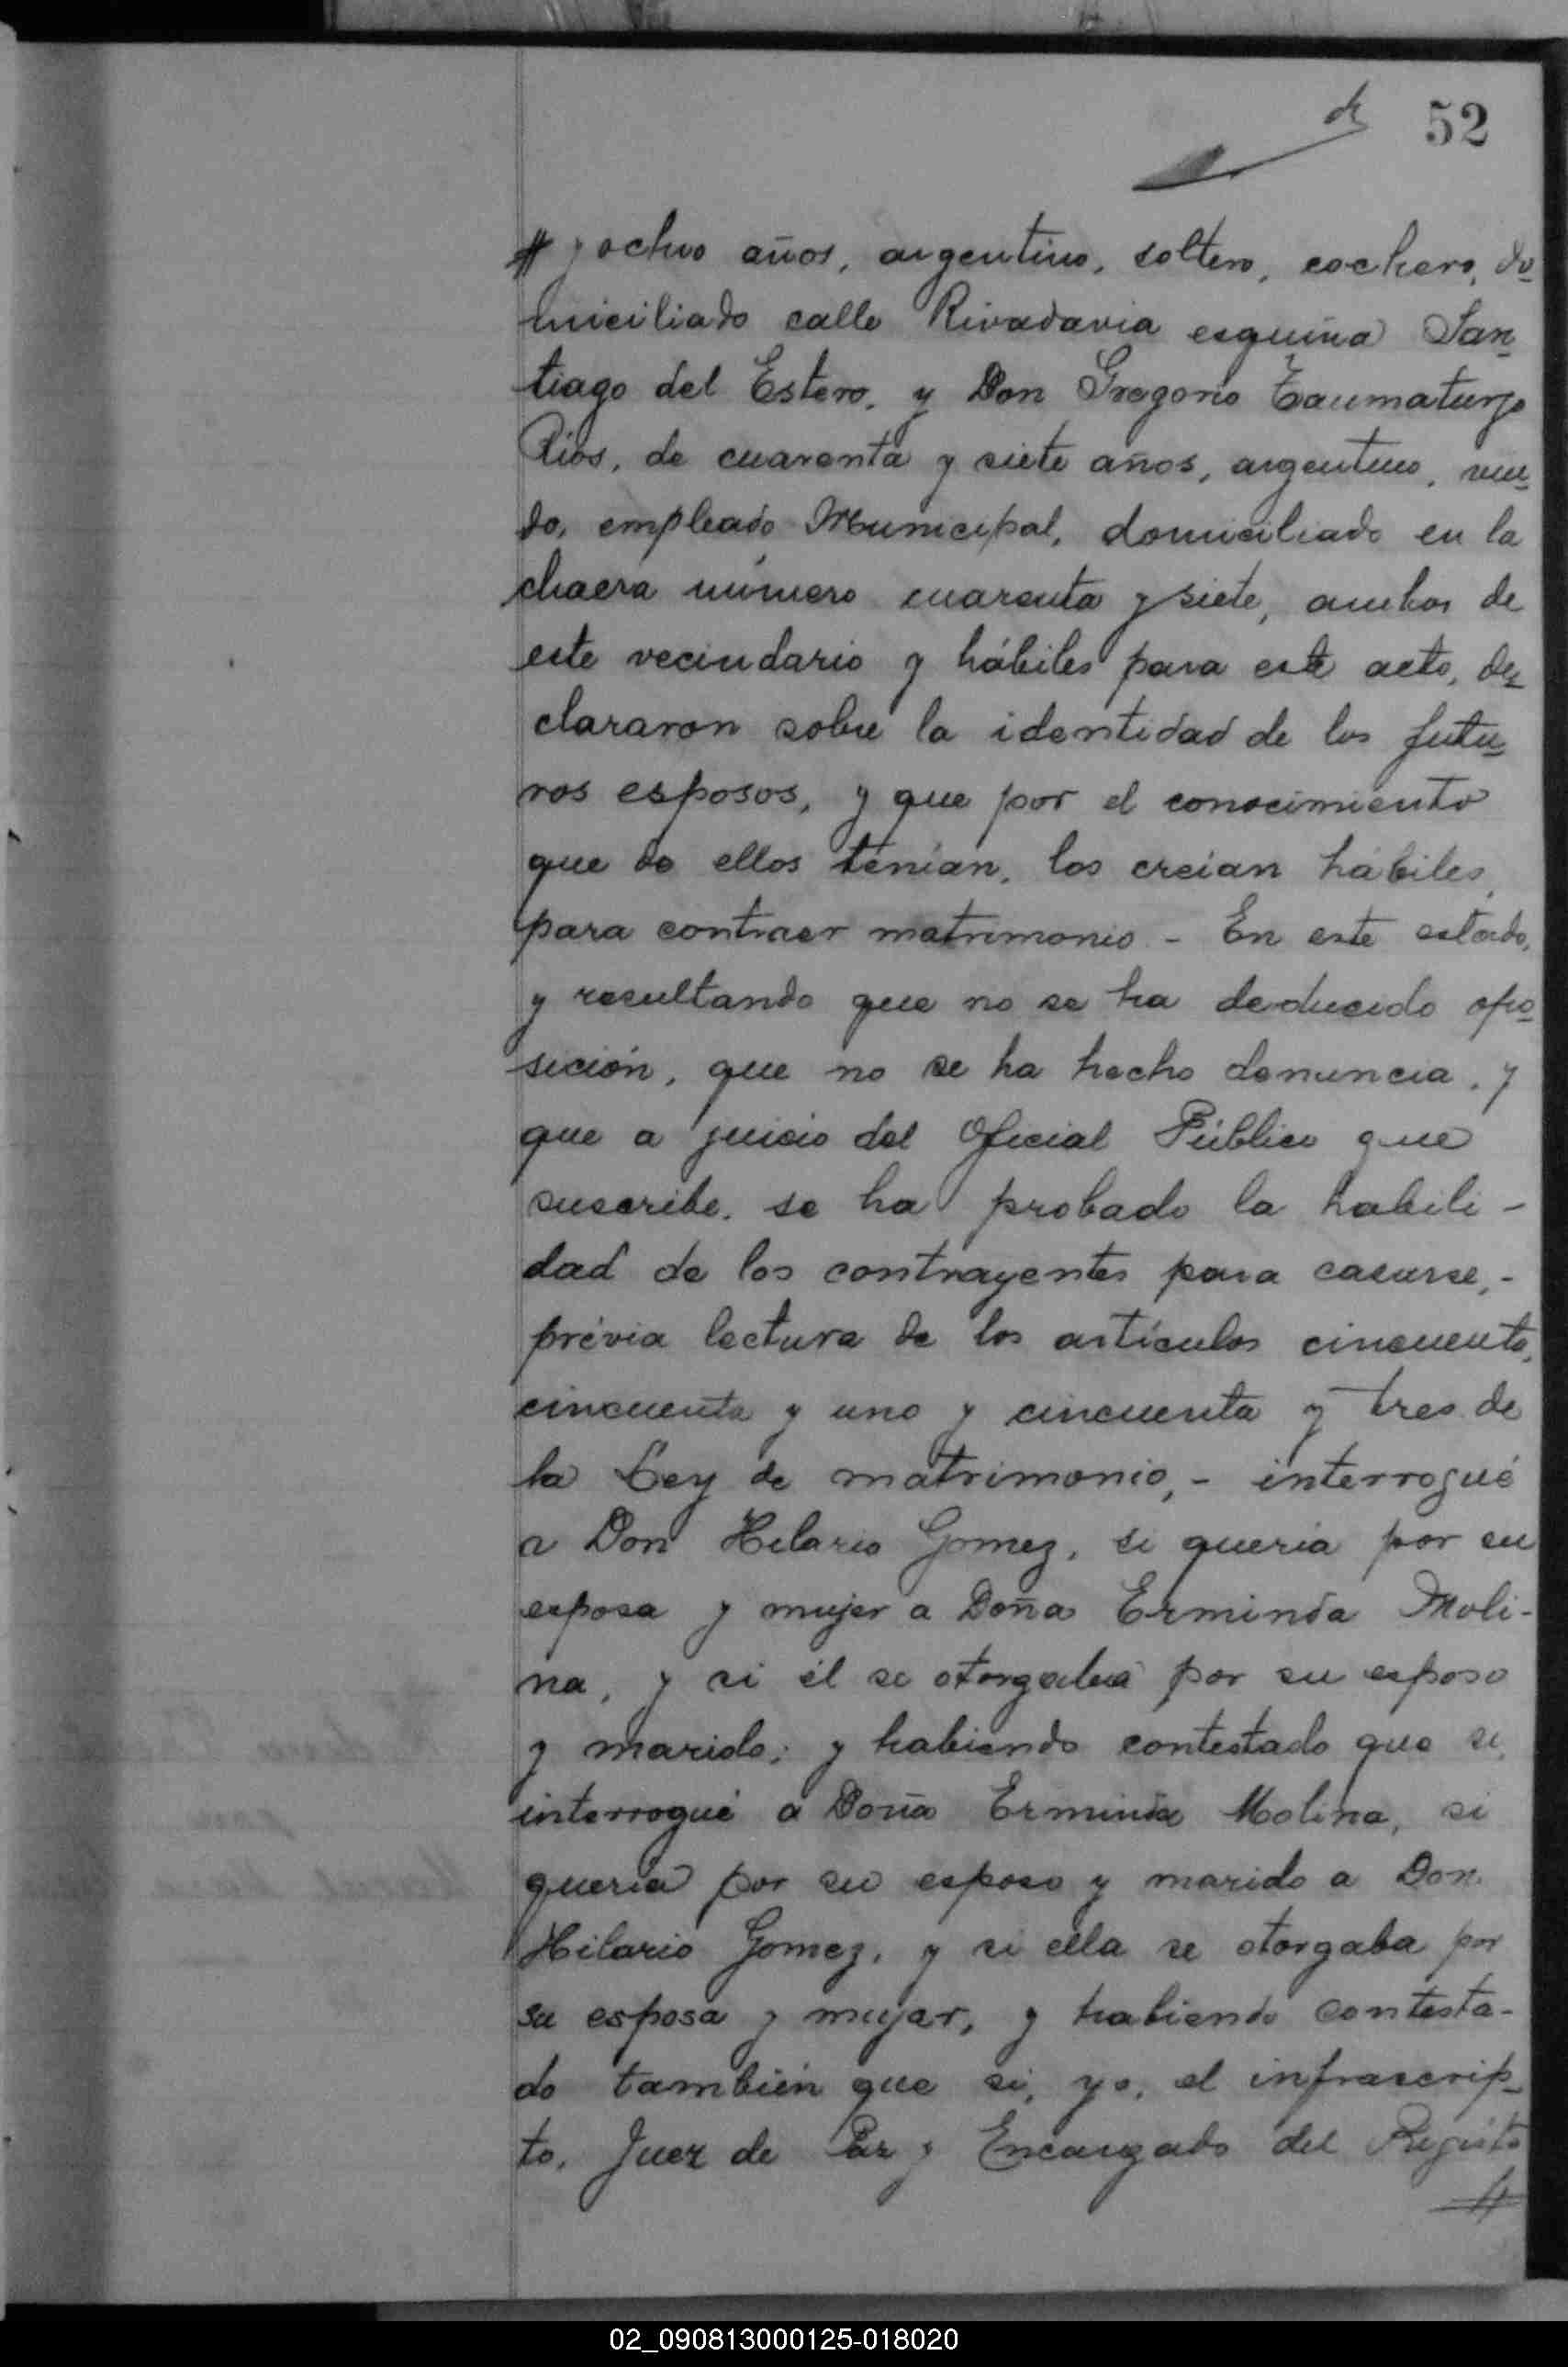 52
# y ocho años, argentino, soltero, cochero, do-
miciliado calle Rivadavia esquina San-
tiago del Estero, y Don Gregorio Taumaturgo
Rios, de cuarenta y siete años, argentino, viu-
do, empleado Municipal, domiciliado en la
chacra número cuarenta y siete, ambos de
este vecindario y hábiles para este acto, de-
clararon sobre la identidad de los futu-
ros esposos, y que por el conocimiento
que de ellos tenían, los creían hábiles
para contraer matrimonio - En este estado,
y resultando que no se ha deducido opo-
sición, que no se ha hecho denuncia, y
que a juicio del Oficial Público que
suscribe, se ha probado la habili-
dad de los contrayentes para casarse, -
prévia lectura de los artículos cincuenta,
cincuenta y uno y cincuenta y tres de
la Ley de matrimonio, - interrogué
a Don Hilario Gomez, si quería por su
esposa y mujer a Doña Erminda Moli-
na, y si él se otorgaba por su esposo
y marido; y habiendo contestado que si,
interrogué a Doña Erminda Molina, si
quería por su esposo y marido a Don
Hilario Gomez, y si ella se otorgaba por
su esposa y mujer, y habiendo contesta-
do también que si, yo, el infrascrip-
to, Juez de Paz y Encargado del Registro
#
02_090813000125-018020